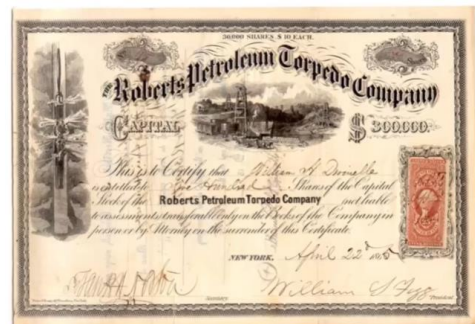 50,000 SHARES $10 EACH.
THE
Roberts Petroleum Torpedo Company
CAPITAL $ 300,000.
This is to Certify that William H
is entitled to Hundred Shares of the Capital
Stock of the Roberts Petroleum Torpedo Company not liable
to assessments transferable only on the books of the Company in
person or by Attorney on the surrender of this Certificate.
NEW YORK, April 22d 1865
William
President